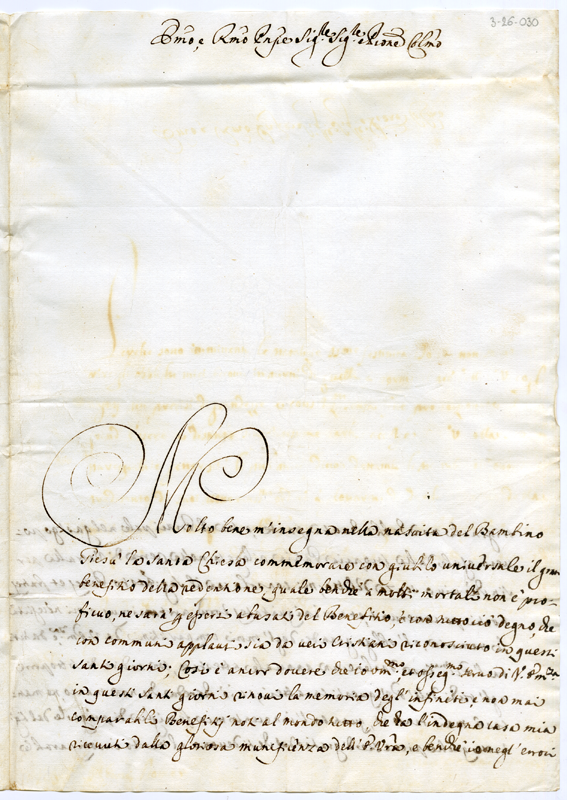 3-26-030
Em̃o, e Rm̃o Prñpe Sig.re Sig.re e Pron̄e Colm̃o
Molto bene m'insegna nella nascita del Bambino
Giesù la Santa Chiesa commemorare con giubilo universale il gran
benefitio della redentione, quale benche a molti mortali non è pro-
ficuo, ne sarà per essersi abusati del Benefitio, è con tutto ciò degno, che
con commun applauso sia da veri Cristiani riconosciuto in questi
Santi giorni; Così è ancor dovere che io vm̃o, et osseq.mo servo di V. Em̃za
in questi Santi giorni rinovi la memoria degl'infiniti, e non mai
comparabili Benefitij noti al mondo tutto, che ha l'indegna casa mia
ricevuti dalla gloriosa munificienza dell'E. Vr̃a, e benche io negl'errori